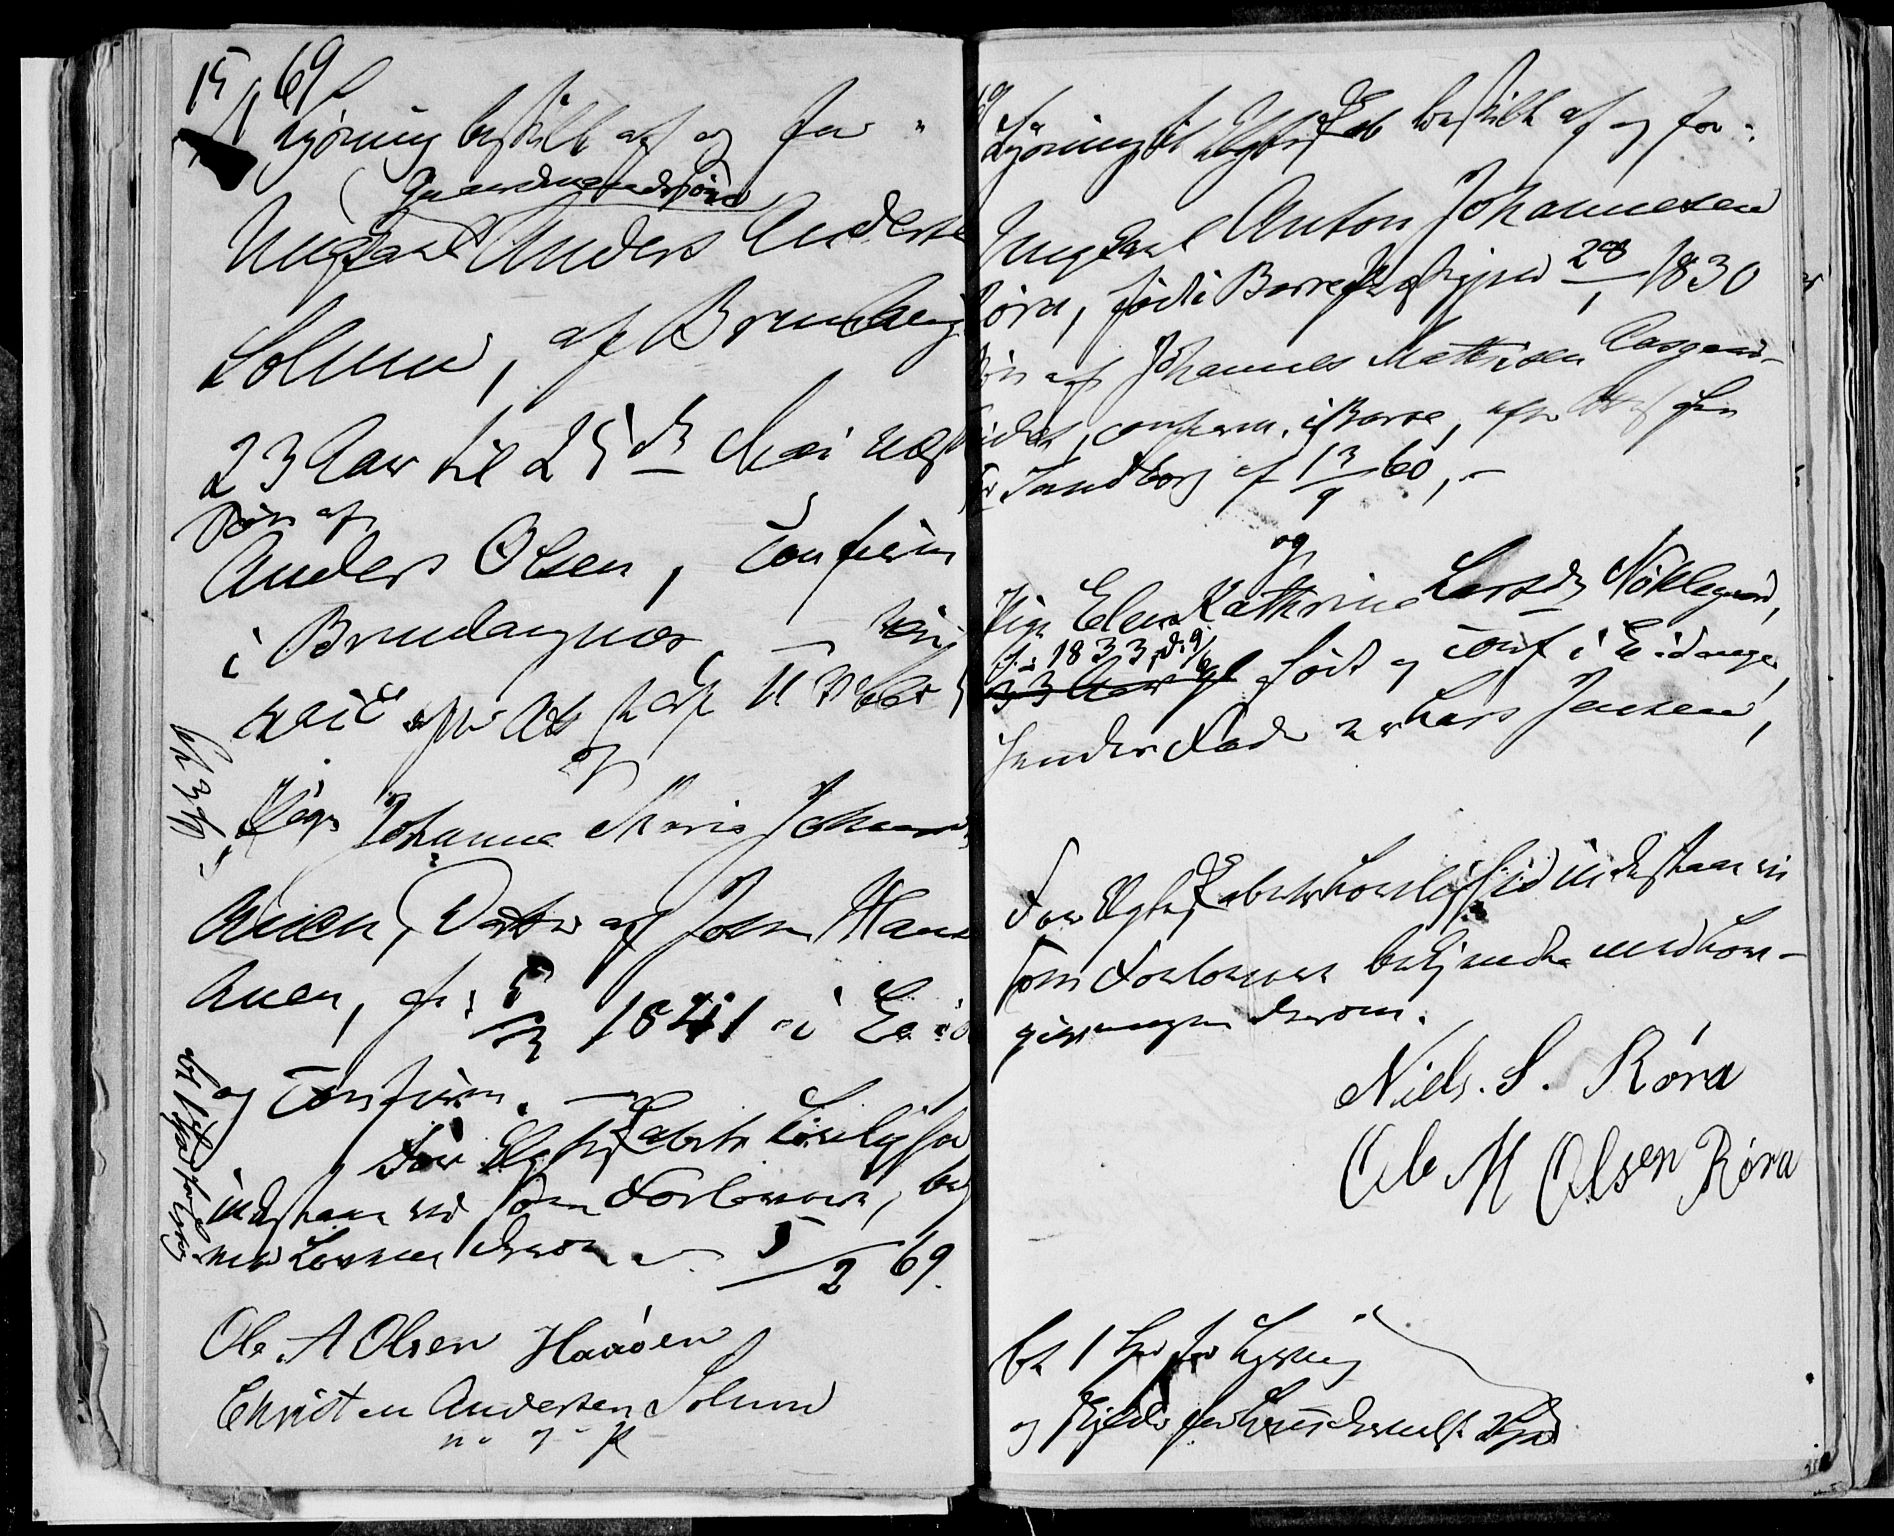 15/1 69
Lysning bestilt af og for
(Gaardmandssøn)
Ungkarl Anders Anders
Solum, af Brunlang
23 Aar til 25de Mai næst
Søn af
Anders Olsen, confirm
i Brunlangnæs,
vacc efter Att
og
Pige Johanne Maria Johans
Auen, Datter af Johan Hans
Auen, f. 1841 i Eid
og confirm.
For Ægteskabets Lovlighed
indestaar vi som Forlovere, bek
med Loven derom 5/2 69.
Ole. A Olsen Haaøen
Christen Andersen Solum
m. o. p.
Lysning til Ægteskab bestilt af og for
Ungkarl Anton Johannesen
Røra, født i Borre Præstegjeld 28/1 1830
Søn af Johannes Mathisen Aasgaard-
, confirm. i Borre, efter Att fra
Sandberg af 13/9 60,
og
Pige Elen Kathrine Larsdtr Nøklegaard,
f. i 1833, d. 9/6
33 Aar gl født og conf i Eidanger,
hendes Fader er Lars Jensen,
For Ægteskabets Lovlighed indestaar vi
som Forlovere bekjendte med Lov-
givningen derom.
Niels. S. Røra
Ole M Olsen Røra
bet 1 Spd for Lysning
og